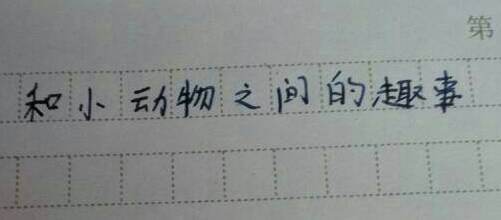 第
和小动物之间的趣事